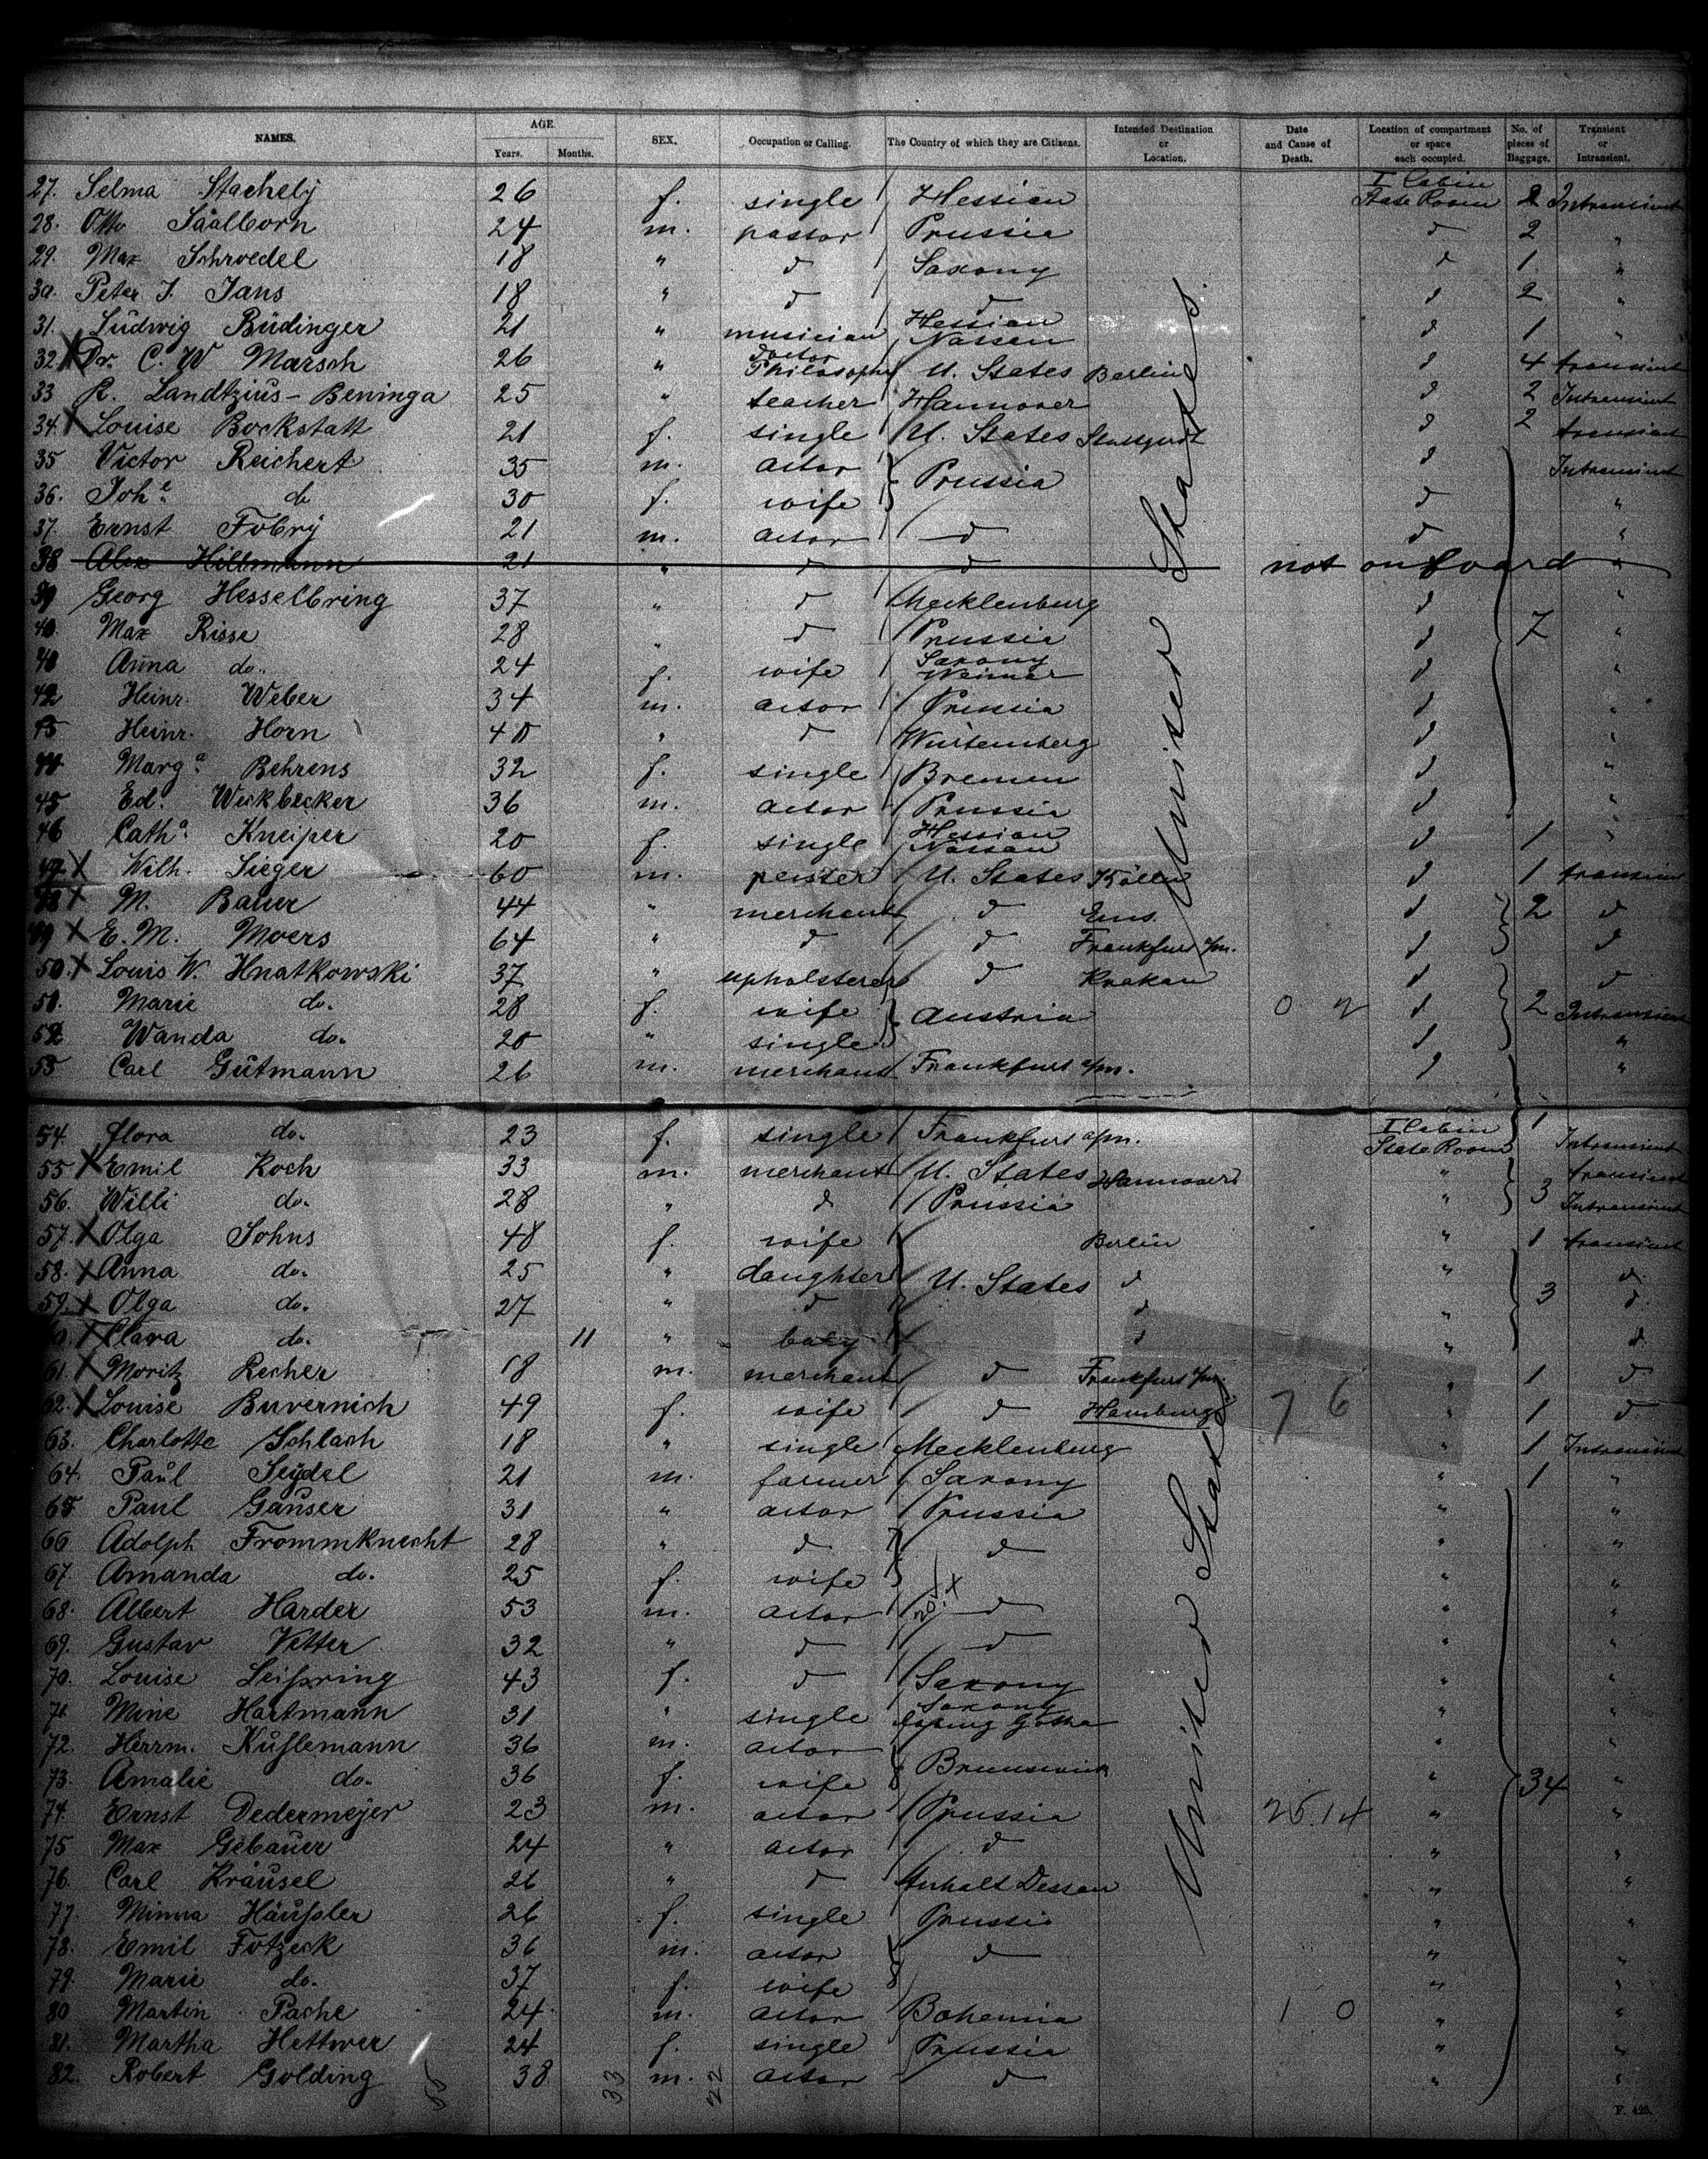 NAMES. AGE. Years. Months. SEX. Occupation or Calling. The Country of which they are Citizens. Intended Destination or Location. Date and Cause of Death. Location of compartment or space each occupied. No. of pieces of Baggage. Transient or Intransient.
27. Selma Stachely 26 f. single Hessian I Cabin State Room 2 Intransient
28. Otto Saalborn 24 m. pastor Prussia d 2 "
29. Max Schroedel 18 " d Saxony d 1 "
30. Peter J. Jans 18 " d d d 2 "
31. Ludwig Büdinger 21 " musician Hessian Nassau d 1 "
32. X Dr. C. W Marsch 26 " doctor Philosophy U. States Berlin d 4 transient
33 R. Landtzius-Beninga 25 " teacher Hannover d 2 Intransient
34. X Louise Bockstatt 21 f. single U. States Stuttgardt d 2 transient
35 Victor Reichert 35 m. actor Prussia d Intransient
36. Joh.e do 30 f. wife d "
37. Ernst Fobry 21 m. actor d d "
38 Alex Hillmann 21 " d d not on board "
39 Georg Hesselbring 37 " d Mecklenburg d "
40. Max Risse 28 " d Prussia d 7 "
Anna do. 24 f. wife Saxony Weimar d "
42 Heinr. Weber 34 m. actor Prussia d "
43 Heinr. Horn 40 " d Würtemberg d "
44 Marg.a Behrens 32 f. single Bremen d "
45 Ed. Weckbecker 36 m. actor Prussia d "
46 Cath.a Kneiper 20 f. single Hessian Nassau d 1 "
47 X Wilh. Sieger 60 m. U. States Kölln d 1 transient
48 X M. Bauer 44 " merchant d Ems. d 2 d
49 X E. M. Moers 64 " d d Frankfurt a/m. d d
50. X Louis W. Hnatkowski 37 " upholsterer d Krakau d d
51. Marie do. 28 f. wife Austria 0 2 d 2 Intransient
52 Wanda do. 20 " single d "
53 Carl Gutmann 26 m. merchant Frankfurt a/m. d "
54. Flora do. 23 f. single Frankfurt a/m. I Cabin State Room 1 Intransient
55 X Emil Koch 33 m. merchant U. States Hannover " transient
56. Willi do. 28 " d Prussia " 3 Intransient
57. X Olga Johns 48 f. wife Berlin " 1 transient
58. X Anna do. 25 " daughter U. States d " d.
59. X Olga do. 27 " d d " 3 d.
60. X Clara do. 11 " baby d " d.
61. X Moritz Recher 18 m. merchant d Frankfurt a/m. " 1 d
62. X Louise Buvernich 49 f. wife d Hamburg 7 6 " 1 d
63. Charlotte Schlach 18 " single Mecklenburg " 1 Intransient
64. Paul Seydel 21 m. farmer Saxony " 1 "
65 Paul Gauser 31 " actor Prussia " "
66 Adolph Frommknecht 28 " d d " "
67. Amanda do. 25 f. wife " "
68. Albert Harder 53 m. actor d " "
69. Gustav Vetter 32 " d d " "
70. Louise Leissring 43 f. d Saxony " "
71. Mine Hartmann 31 " single Saxony Gotha " "
72. Herrm. Kusslemann 36 m. actor Brunswick " "
73. Amalie do. 36 f. wife " 34 "
74. Ernst Dedermejer 23 m. actor Prussia 25.14 " "
75 Max Gebauer 24 " actor d " "
76. Carl Kräusel 26 " d Anhalt Dessau " "
77. Minna Häussler 26 f. single Prussia " "
78. Emil Fotzeck 36 m. actor d " "
79. Marie do. 37 f. wife " "
80 Martin Pache 24. m. actor Bohemia 1 0 " "
81. Martha Hettwer 24 f. single Prussia " "
82. Robert Golding 38 m. actor d " "
United States
United States
33
22
F. 425.